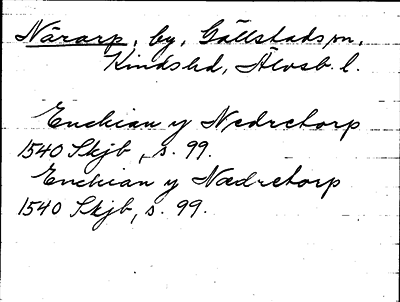 Närarp, by, Gällstads sn,
Kinds hd, Älvsb. l.
Enckian y Nedretorp
1540 Skjb, s. 99.
Enckian y Nædretorp
1540 Skjb, s. 99.